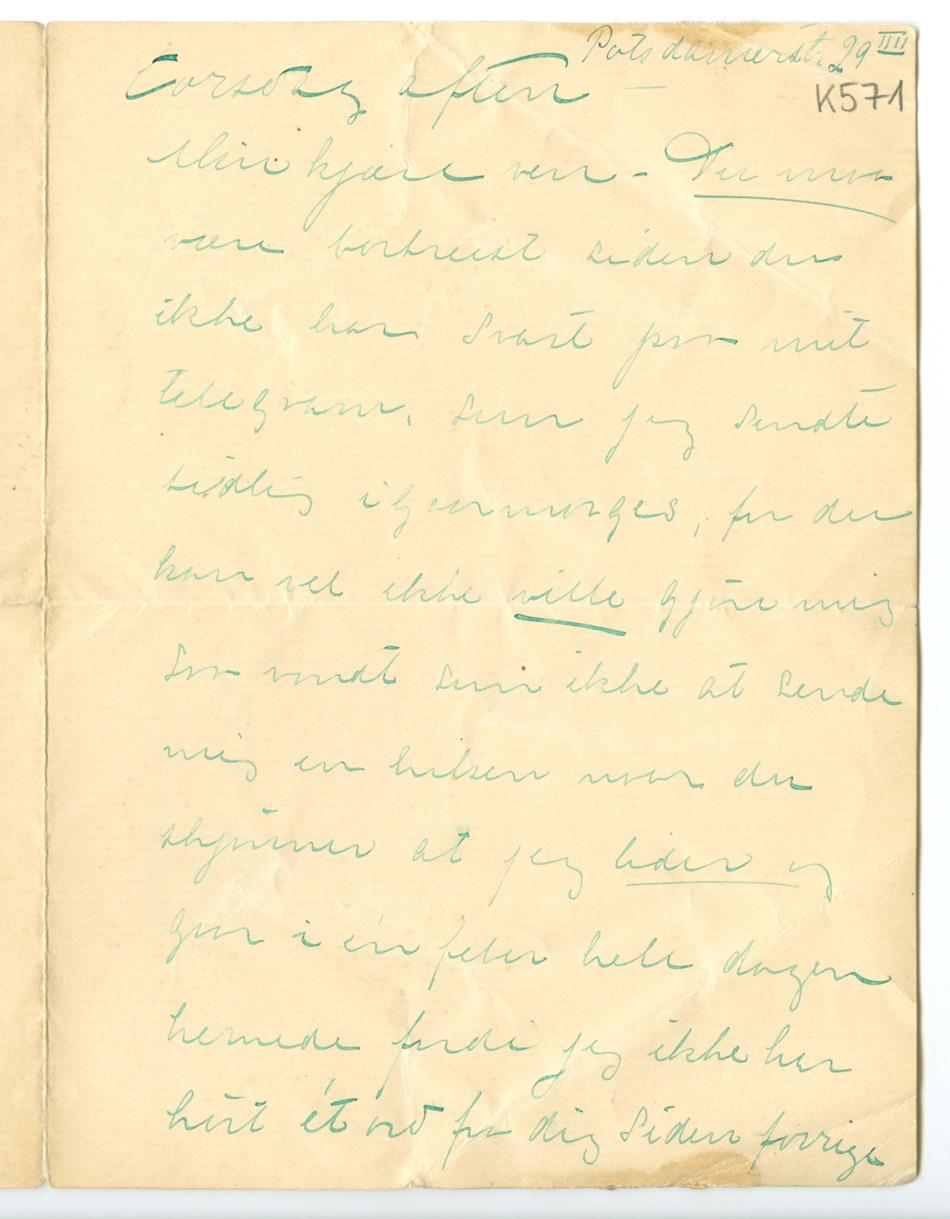 Potsdamerst. 29 IIII
K571
Torsdag aften
Min kjære ven – Du maa
være bortreist siden du
ikke har svart paa mit
telegram, som jeg sendte
tidlig igaarmorges, for du
kan vel ikke ville gjöre mig
saa vondt som ikke at sende
mig en hilsen naar du
skjönner at jeg lider og
gaar i én feber hele dagen
hernede fordi jeg ikke har
hört ét ord fra dig siden forrige